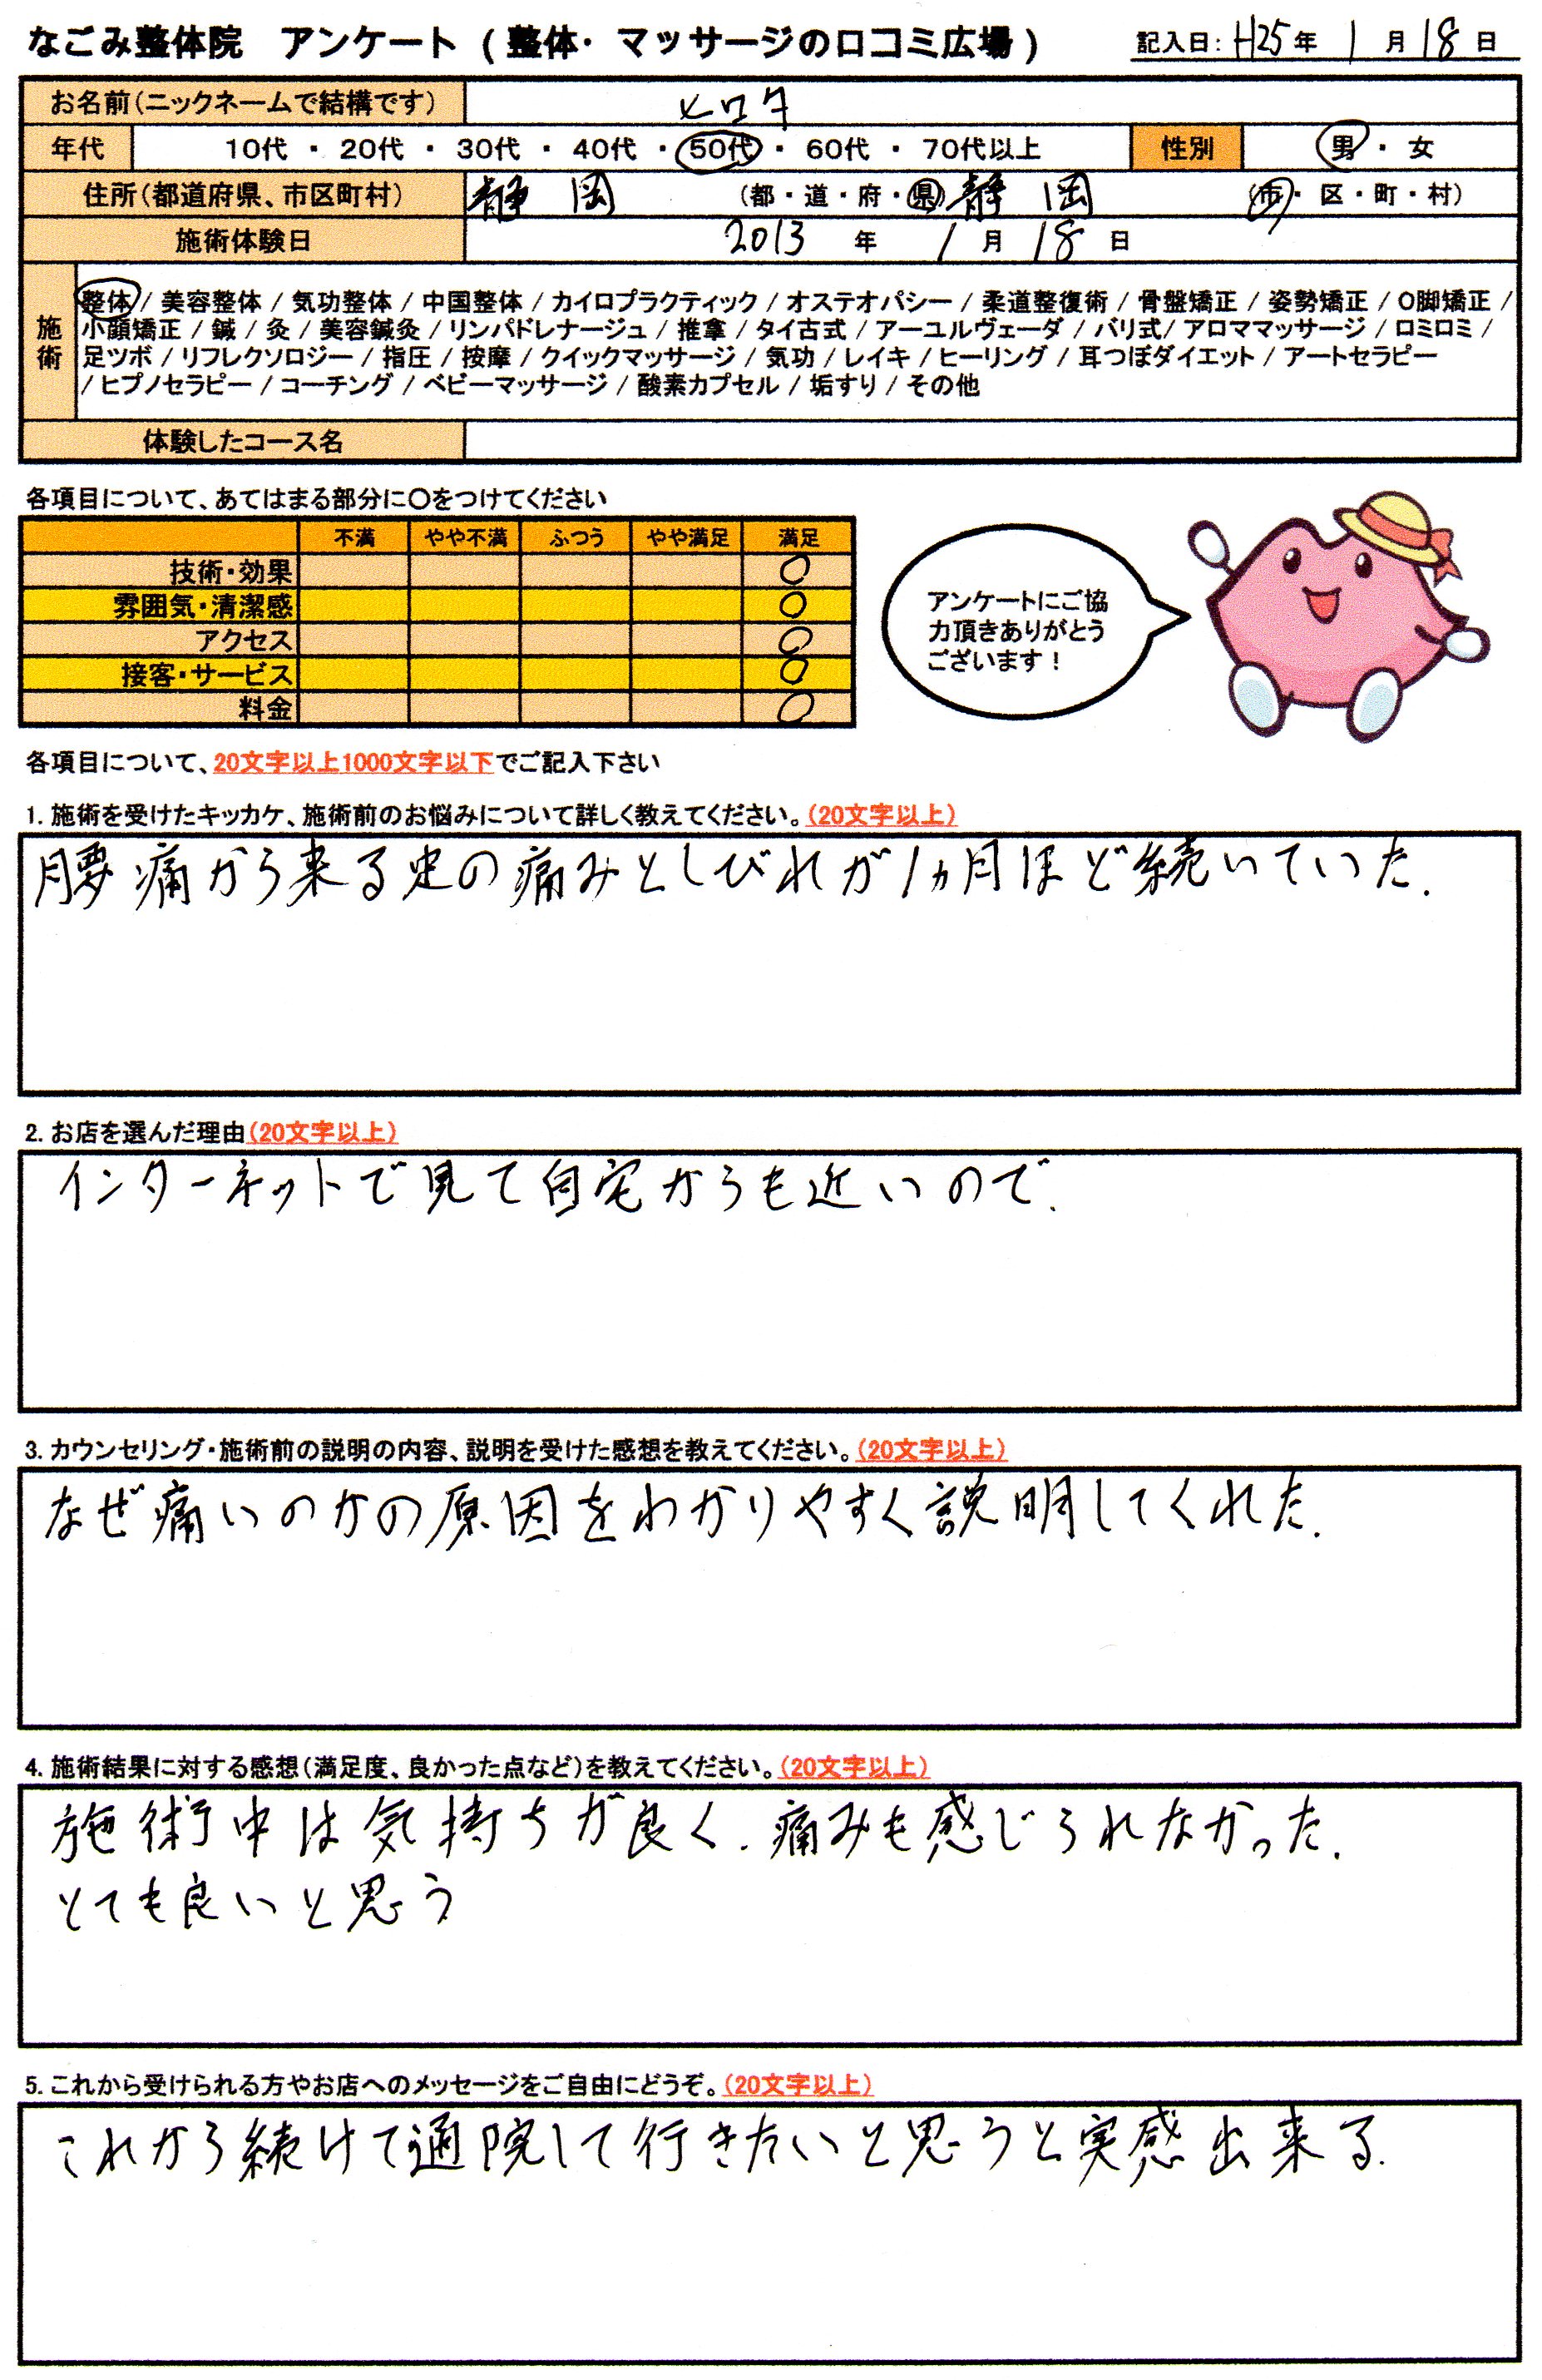 なごみ整体院 アンケート（整体・マッサージの口コミ広場） 記入日：H25年 1月18日
お名前（ニックネームで結構です） ヒロタ
年代 10代 ・ 20代 ・ 30代 ・ 40代 ・ 50代 ・ 60代 ・ 70代以上 性別 男 ・ 女
住所（都道府県、市区町村） 静岡（都・道・府・県）静岡（市・区・町・村）
施術体験日 2013年 1月18日
施術
整体 / 美容整体 / 気功整体 / 中国整体 / カイロプラクティック / オステオパシー / 柔道整復術 / 骨盤矯正 / 姿勢矯正 / O脚矯正 /
小顔矯正 / 鍼 / 灸 / 美容鍼灸 / リンパドレナージュ / 推拿 / タイ古式 / アーユルヴェーダ / バリ式 / アロママッサージ / ロミロミ /
足ツボ / リフレクソロジー / 指圧 / 按摩 / クイックマッサージ / 気功 / レイキ / ヒーリング / 耳つぼダイエット / アートセラピー
/ ヒプノセラピー / コーチング / ベビーマッサージ / 酸素カプセル / 垢すり / その他
体験したコース名
各項目について、あてはまる部分に〇をつけてください
不満 やや不満 ふつう やや満足 満足
技術・効果 〇
雰囲気・清潔感 〇
アクセス 〇
接客・サービス 〇
料金 〇
アンケートにご協
力頂きありがとう
ございます！
各項目について、20文字以上1000文字以下でご記入下さい
1. 施術を受けたキッカケ、施術前のお悩みについて詳しく教えてください。（20文字以上）
腰痛から来る足の痛みとしびれが1ヵ月ほど続いていた.
2. お店を選んだ理由（20文字以上）
インターネットで見て自宅からも近いので.
3. カウンセリング・施術前の説明の内容、説明を受けた感想を教えてください。（20文字以上）
なぜ痛いのかの原因をわかりやすく説明してくれた.
4. 施術結果に対する感想（満足度、良かった点など）を教えてください。（20文字以上）
施術中は気持ちが良く. 痛みも感じられなかった.
とても良いと思う
5. これから受けられる方やお店へのメッセージをご自由にどうぞ。（20文字以上）
これから続けて通院して行きたいと思うと実感出来る.